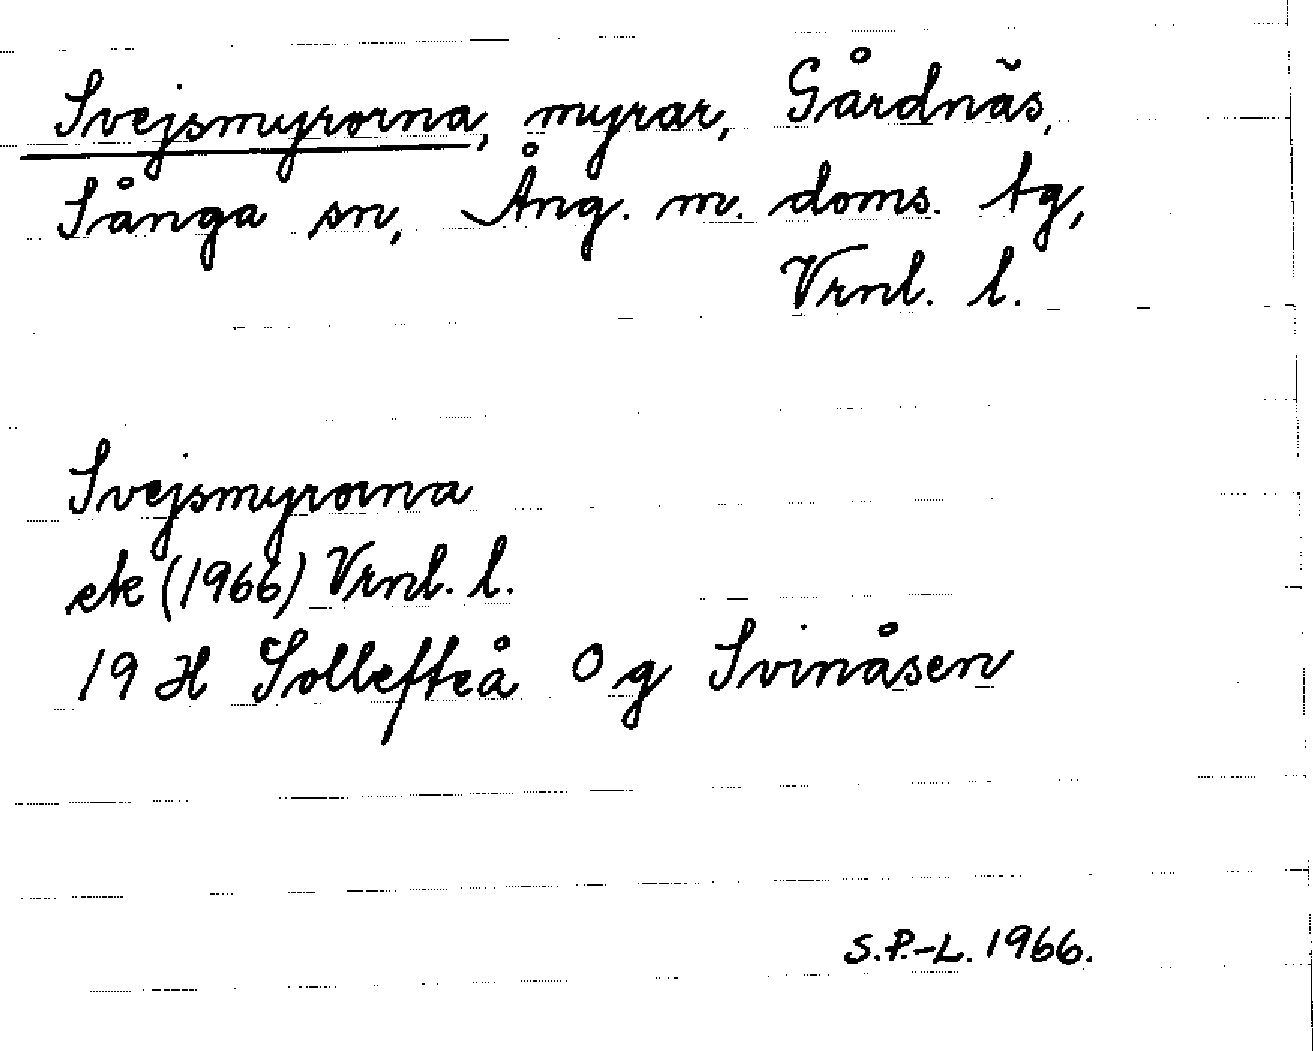 Svejsmyrorna, myrar, Gårdnäs,
Sånga sn, Ång. m. doms. tg,
Vrnl. l.
Svejsmyrorna
ek (1966) Vrnl. l.
19 H Sollefteå 0 g Svinåsen
S.P.-L. 1966.